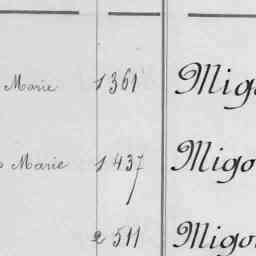 Marie 1361 Mig
Marie 1437 Migo
2511 Migo